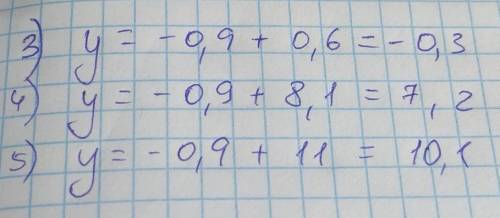 3) y = -0,9 + 0,6 = -0,3
4) y = -0,9 + 8,1 = 7,2
5) y = -0,9 + 11 = 10,1